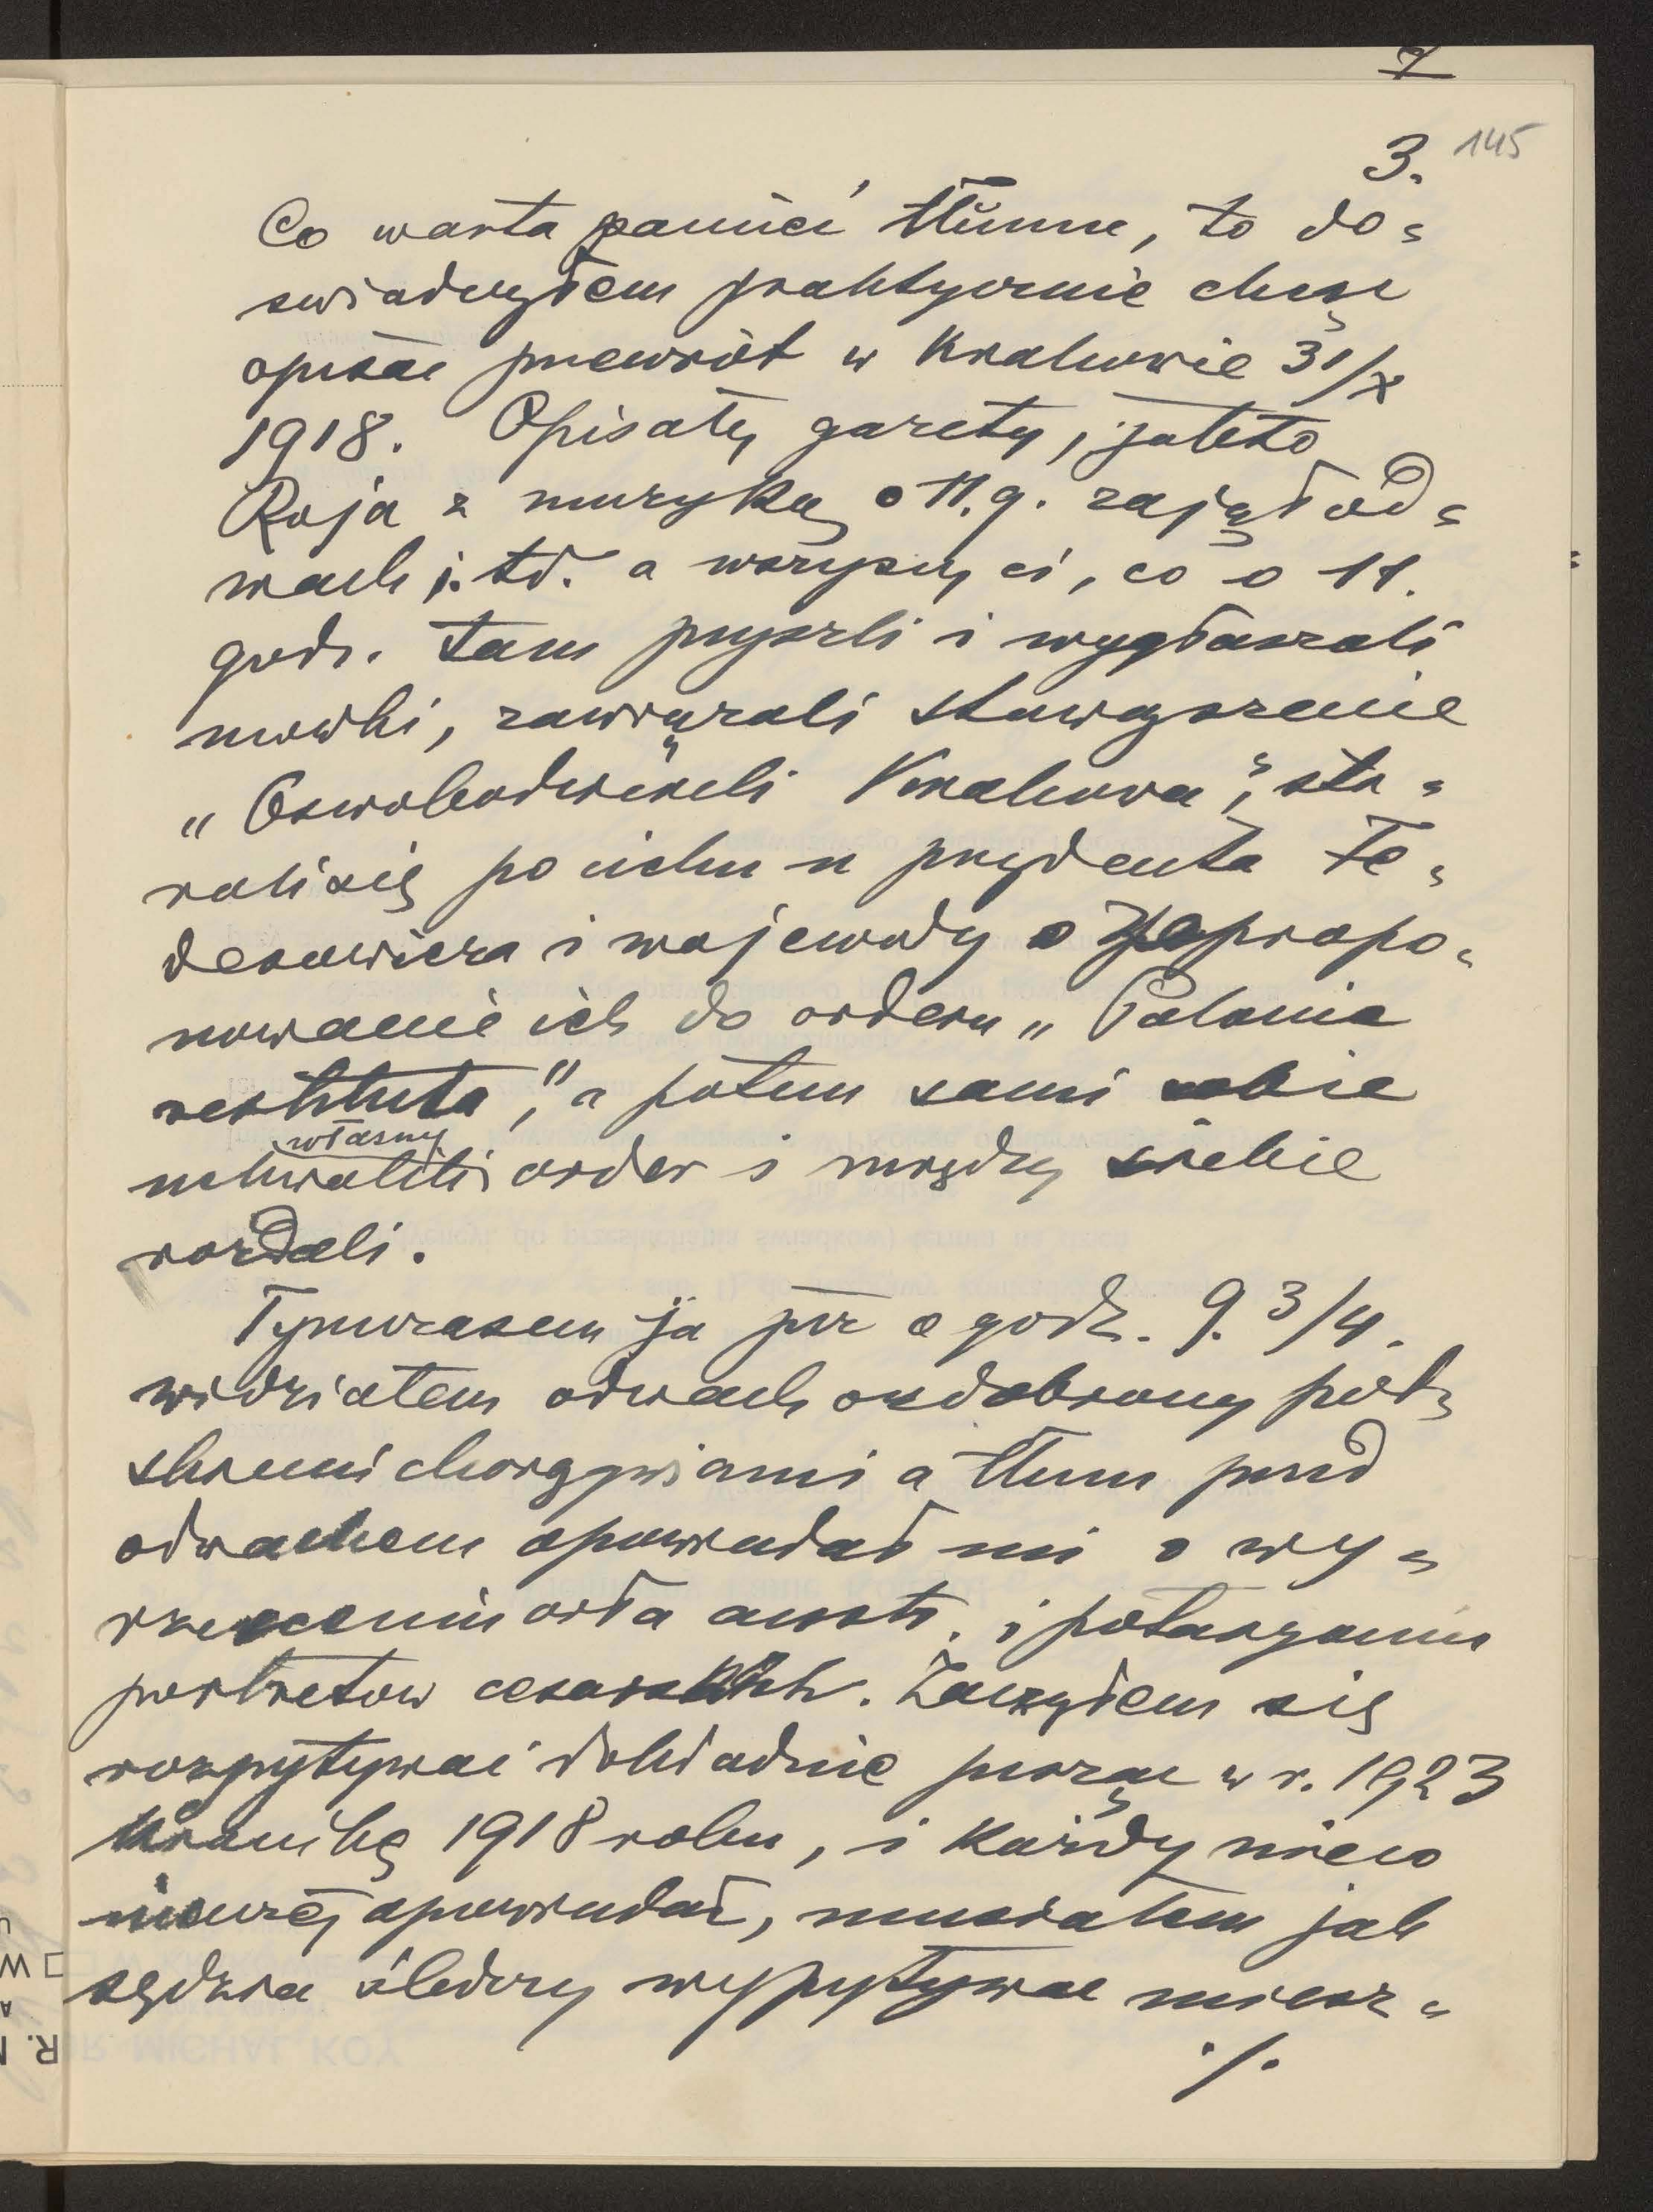 7
3. 145
Co warta pamięć tłumu, to do=
świadczyłem praktycznie chcąc
opisać przewrót w Krakowie 31/X
1918. Opisały gazety, jak to
Roja z muzyką o 11.g. zajął od=
wach i.td. a wszyscy ci, co o 11.
godz. tam przyszli i wygłaszali
mówki, zawiązali stowarzyszenie
„Oswobodzicieli Krakowa", sta=
rali się po cichu u prezydenta Fe=
derowicza i wojewody o zapropo=
nowanie ich do orderu „Polonia
restituta", a potem sami sobie
własny
uchwalili order i między siebie
rozdali.
Tymczasem ja już o godz. 9. 3/4.
widziałem odwach ozdobiony pol=
skiemi chorągwiami a tłum przed
odwachem opowiadał mi o wy=
rzuceniu orła austr. i potarganiu
portretów cesarskich. Zacząłem się
rozpytywać dokładnie pisząc w r. 1923
Kronikę 1918 roku, i każdy nieco
inaczej opowiadał, musiałem jak
sędzia śledczy wypytywać miesz=
./.